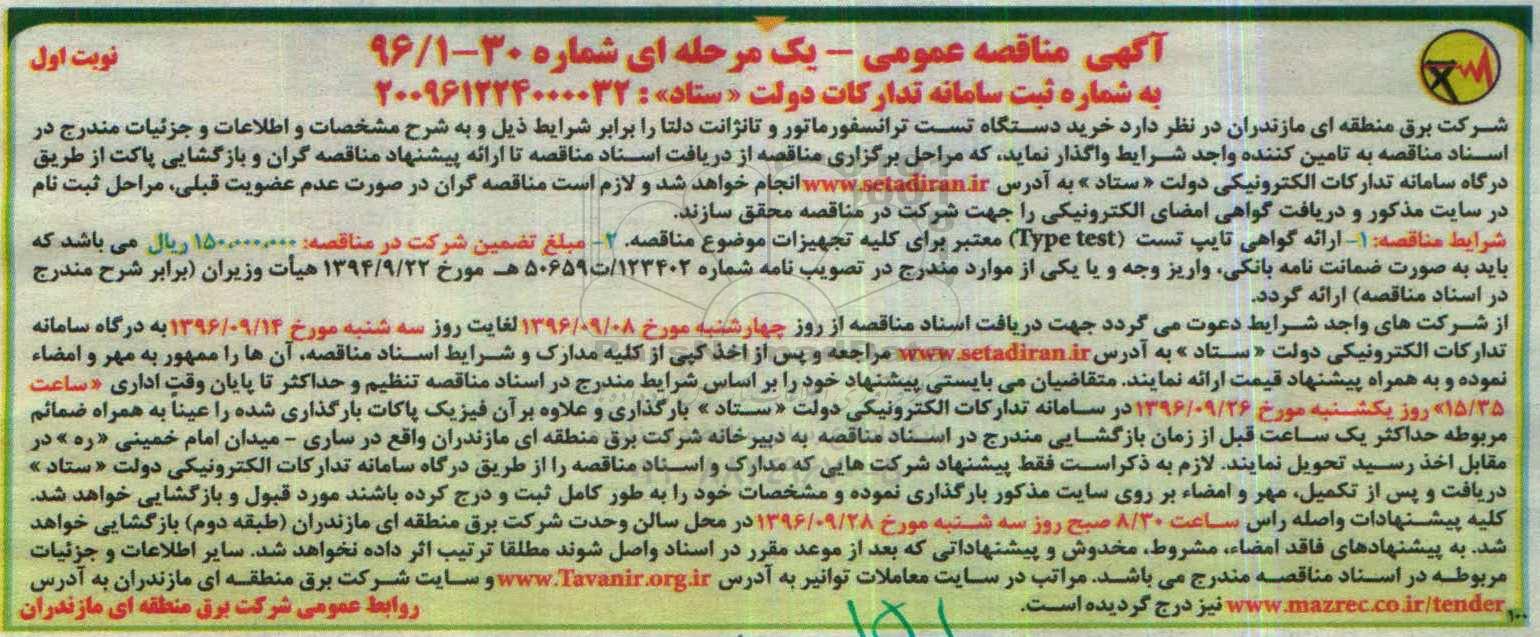 آگهی مناقصه عمومی – یک مرحله ای شماره ۳۰-۹۶/۱
نوبت اول
به شماره ثبت سامانه تدارکات دولت «ستاد»: ۲۰۰۹۶۱۲۲۴۰۰۰۰۳۲
شرکت برق منطقه ای مازندران در نظر دارد خرید دستگاه تست ترانسفورماتور و تانژانت دلتا را برابر شرایط ذیل و به شرح مشخصات و اطلاعات و جزئیات مندرج در
اسناد مناقصه به تامین کننده واجد شرایط واگذار نماید، که مراحل برگزاری مناقصه از دریافت اسناد مناقصه تا ارائه پیشنهاد مناقصه گران و بازگشایی پاکت از طریق
درگاه سامانه تدارکات الکترونیکی دولت «ستاد» به آدرس www.setadiran.ir انجام خواهد شد و لازم است مناقصه گران در صورت عدم عضویت قبلی، مراحل ثبت نام
در سایت مذکور و دریافت گواهی امضای الکترونیکی را جهت شرکت در مناقصه محقق سازند.
شرایط مناقصه: ۱- ارائه گواهی تایپ تست (Type test) معتبر برای کلیه تجهیزات موضوع مناقصه. ۲- مبلغ تضمین شرکت در مناقصه: ۱۵۰،۰۰۰،۰۰۰ ریال می باشد که
باید به صورت ضمانت نامه بانکی، واریز وجه و یا یکی از موارد مندرج در تصویب نامه شماره ۱۲۳۴۰۲/ت۵۰۶۵۹ هـ مورخ ۱۳۹۴/۹/۲۲ هیأت وزیران (برابر شرح مندرج
در اسناد مناقصه) ارائه گردد.
از شرکت های واجد شرایط دعوت می گردد جهت دریافت اسناد مناقصه از روز چهارشنبه مورخ ۱۳۹۶/۰۹/۰۸ لغایت روز سه شنبه مورخ ۱۳۹۶/۰۹/۱۴ به درگاه سامانه
تدارکات الکترونیکی دولت «ستاد» به آدرس www.setadiran.ir مراجعه و پس از اخذ کپی از کلیه مدارک و شرایط اسناد مناقصه، آن ها را ممهور به مهر و امضاء
نموده و به همراه پیشنهاد قیمت ارائه نمایند. متقاضیان می بایستی پیشنهاد خود را بر اساس شرایط مندرج در اسناد مناقصه تنظیم و حداکثر تا پایان وقت اداری «ساعت
۱۵/۳۵» روز یکشنبه مورخ ۱۳۹۶/۰۹/۲۶ در سامانه تدارکات الکترونیکی دولت «ستاد» بارگذاری و علاوه بر آن فیزیک پاکات بارگذاری شده را عیناً به همراه ضمائم
مربوطه حداکثر یک ساعت قبل از زمان بازگشایی مندرج در اسناد مناقصه به دبیرخانه شرکت برق منطقه ای مازندران واقع در ساری – میدان امام خمینی «ره» در
مقابل اخذ رسید تحویل نمایند. لازم به ذکراست فقط پیشنهاد شرکت هایی که مدارک و اسناد مناقصه را از طریق درگاه سامانه تدارکات الکترونیکی دولت «ستاد»
دریافت و پس از تکمیل، مهر و امضاء بر روی سایت مذکور بارگذاری نموده و مشخصات خود را به طور کامل ثبت و درج کرده باشند مورد قبول و بازگشایی خواهد شد.
کلیه پیشنهادات واصله راس ساعت ۸/۳۰ صبح روز سه شنبه مورخ ۱۳۹۶/۰۹/۲۸ در محل سالن وحدت شرکت برق منطقه ای مازندران (طبقه دوم) بازگشایی خواهد
شد. به پیشنهادهای فاقد امضاء، مشروط، مخدوش و پیشنهاداتی که بعد از موعد مقرر در اسناد واصل شوند مطلقا ترتیب اثر داده نخواهد شد. سایر اطلاعات و جزئیات
مربوطه در اسناد مناقصه مندرج می باشد. مراتب در سایت معاملات توانیر به آدرس www.Tavanir.org.ir و سایت شرکت برق منطقه ای مازندران به آدرس
www.mazrec.co.ir/tender نیز درج گردیده است.
روابط عمومی شرکت برق منطقه ای مازندران